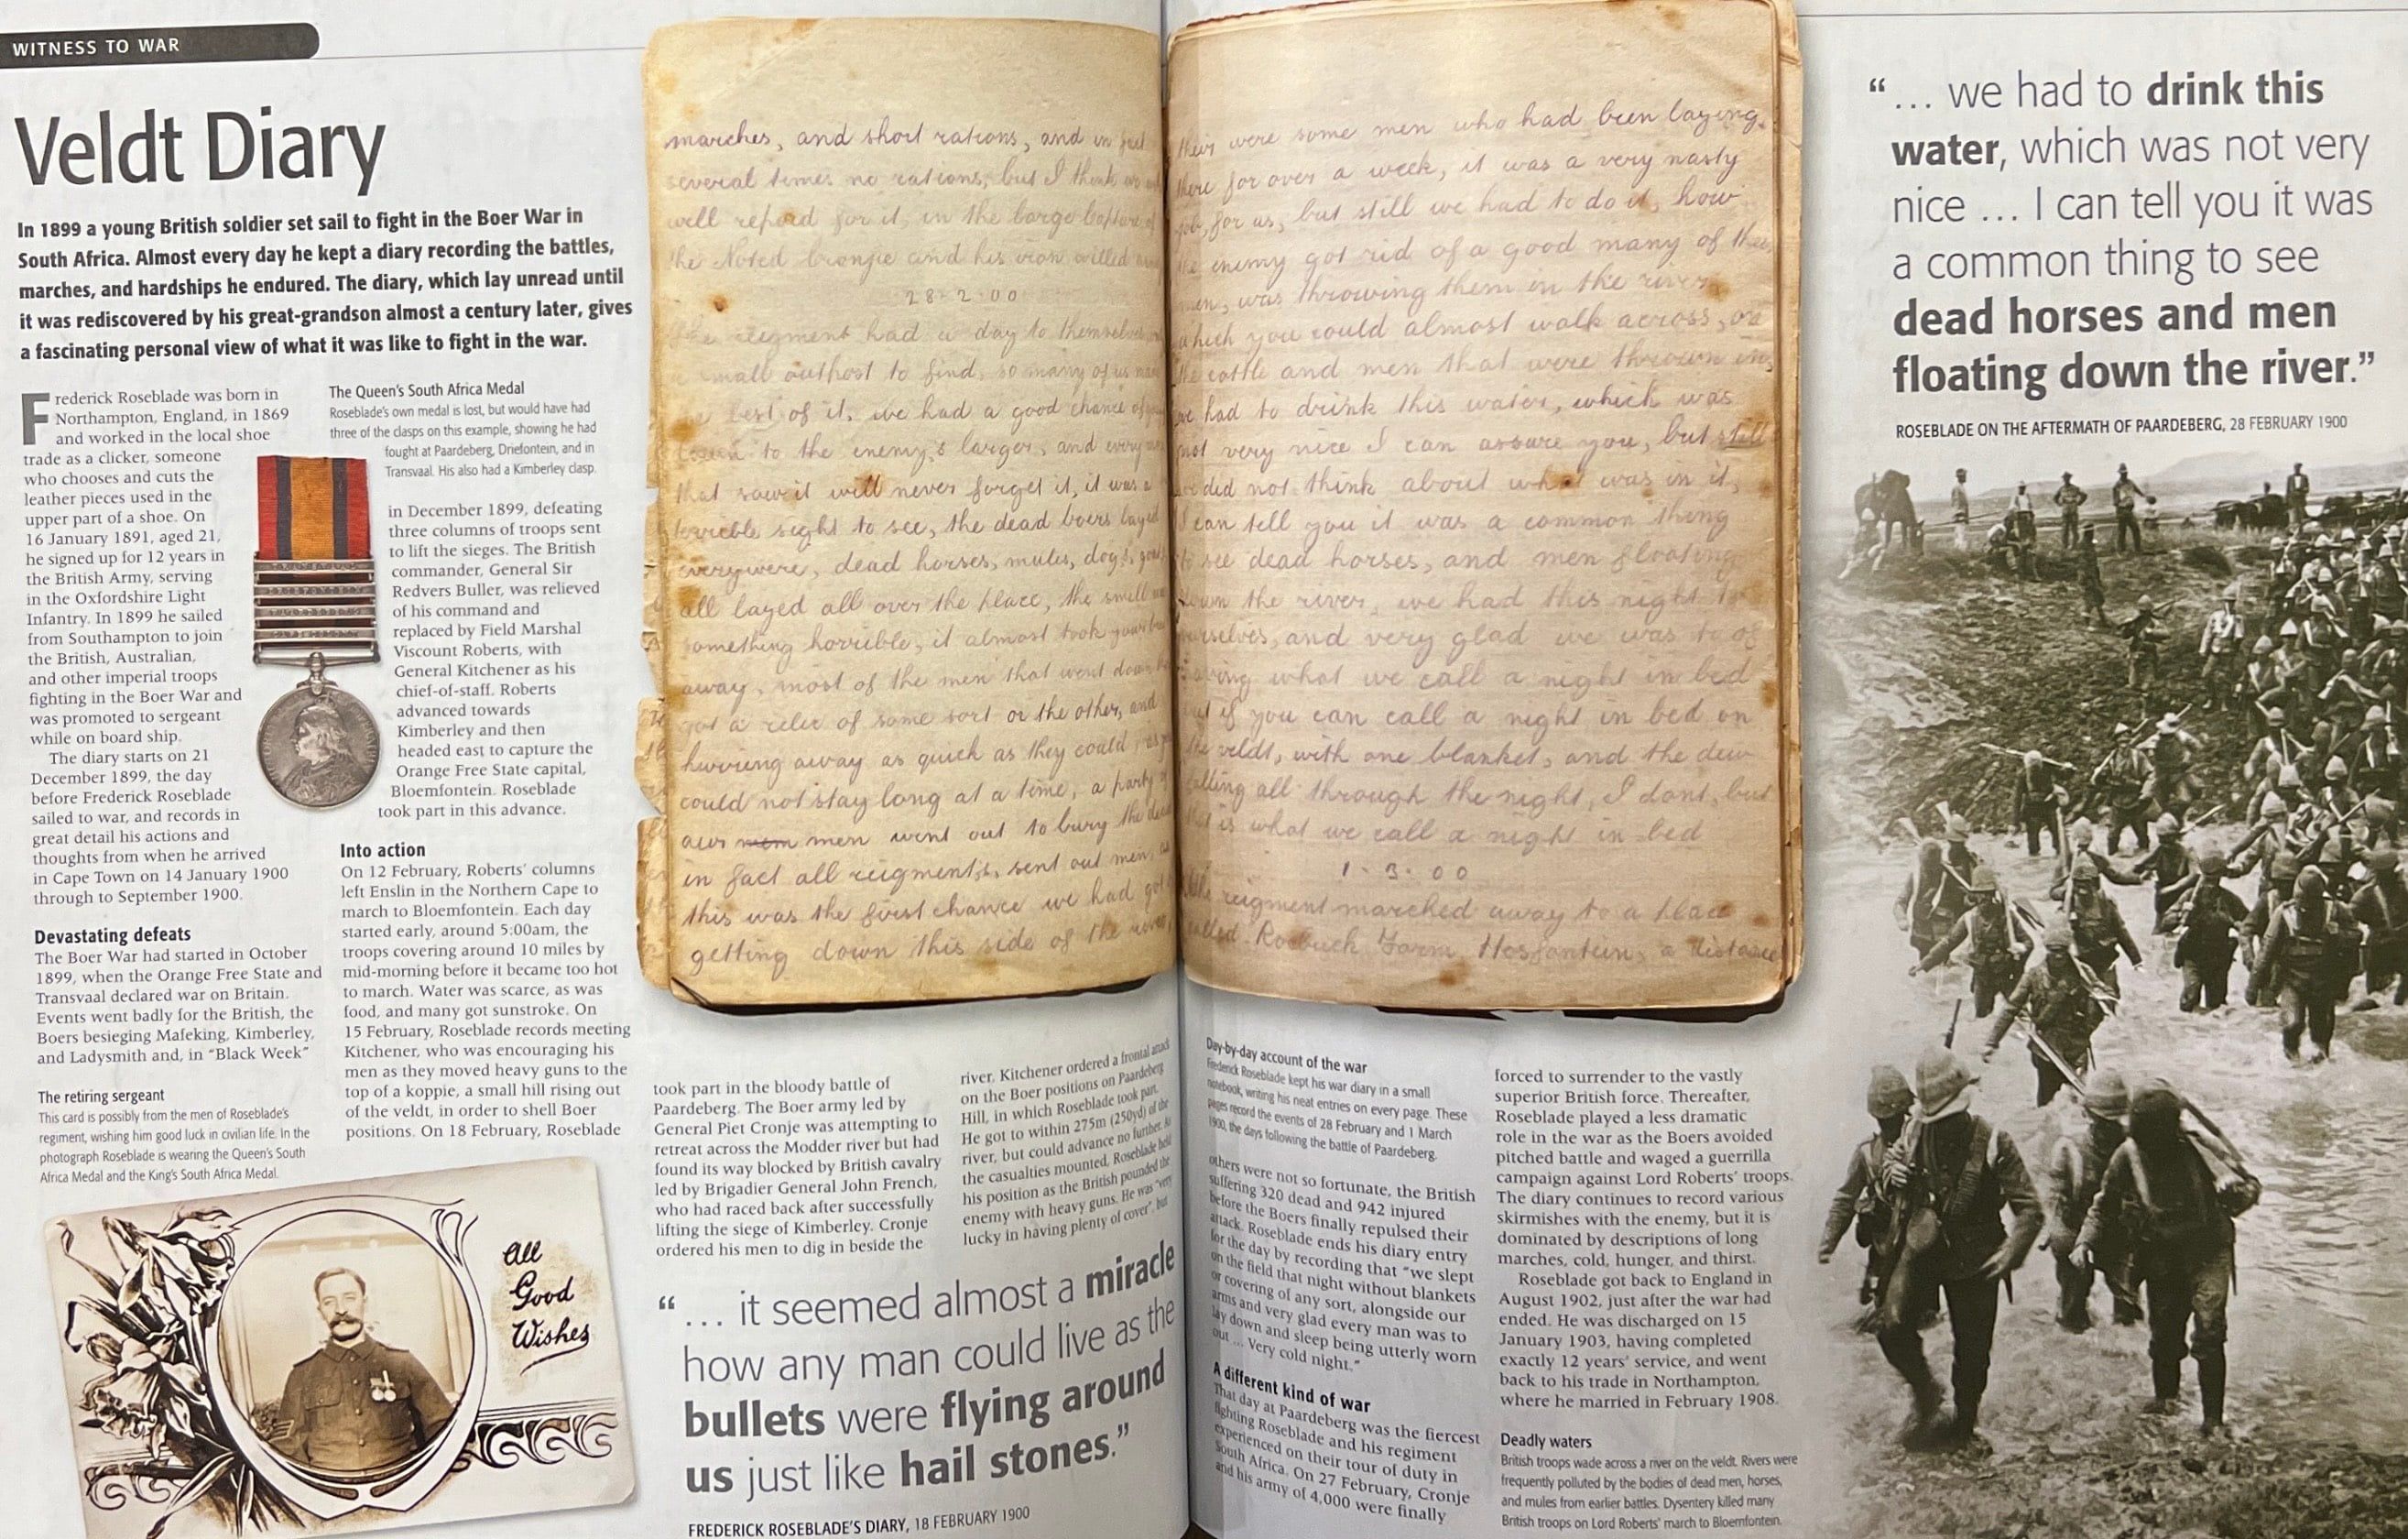 WITNESS TO WAR
Veldt Diary
In 1899 a young British soldier set sail to fight in the Boer War in
South Africa. Almost every day he kept a diary recording the battles,
marches, and hardships he endured. The diary, which lay unread until
it was rediscovered by his great-grandson almost a century later, gives
a fascinating personal view of what it was like to fight in the war.
Frederick Roseblade was born in
Northampton, England, in 1869
and worked in the local shoe
trade as a clicker, someone
who chooses and cuts the
leather pieces used in the
upper part of a shoe. On
16 January 1891, aged 21,
he signed up for 12 years in
the British Army, serving
in the Oxfordshire Light
Infantry. In 1899 he sailed
from Southampton to join
the British, Australian,
and other imperial troops
fighting in the Boer War and
was promoted to sergeant
while on board ship.
The diary starts on 21
December 1899, the day
before Frederick Roseblade
sailed to war, and records in
great detail his actions and
thoughts from when he arrived
in Cape Town on 14 January 1900
through to September 1900.
Devastating defeats
The Boer War had started in October
1899, when the Orange Free State and
Transvaal declared war on Britain.
Events went badly for the British, the
Boers besieging Mafeking, Kimberley,
and Ladysmith and, in "Black Week"
The retiring sergeant
This card is possibly from the men of Roseblade's
regiment, wishing him good luck in civilian life. In the
photograph Roseblade is wearing the Queen's South
Africa Medal and the King's South Africa Medal.
All
Good
Wishes
The Queen's South Africa Medal
Roseblade's own medal is lost, but would have had
three of the clasps on this example, showing he had
fought at Paardeberg, Driefontein, and in
Transvaal. He also had a Kimberley clasp.
in December 1899, defeating
three columns of troops sent
to lift the sieges. The British
commander, General Sir
Redvers Buller, was relieved
of his command and
replaced by Field Marshal
Viscount Roberts, with
General Kitchener as his
chief-of-staff. Roberts
advanced towards
Kimberley and then
headed east to capture the
Orange Free State capital,
Bloemfontein. Roseblade
took part in this advance.
Into action
On 12 February, Roberts' columns
left Enslin in the Northern Cape to
march to Bloemfontein. Each day
started early, around 5:00am, the
troops covering around 10 miles by
mid-morning before it became too hot
to march. Water was scarce, as was
food, and many got sunstroke. On
15 February, Roseblade records meeting
Kitchener, who was encouraging his
men as they moved heavy guns to the
top of a koppie, a small hill rising out
of the veldt, in order to shell Boer
positions. On 18 February, Roseblade
marches, and short rations, and in
several times no rations, but I think
well repaid for it, in the large
the Noted Cronjie and his iron willed
28-2-00
regiment had a day to themselves
small outpost to find, so many of us
best of it, we had a good chance of
to the enemy's larger, and every
that saw it will never forget it, it was a
terrible sight to see, the dead boers layed
everywere, dead horses, mules, dogs,
all layed all over the place, the smell
something horrible, it almost took your
away, most of the men that went down
got a relic of some sort or the other, and
hurrying away as quick as they could
could not stay long at a time, a party
our men went out to bury the dead
in fact all reigments, sent out men,
this was the first chance we had got
getting down this side of the river,
their were some men who had been laying
there for over a week, it was a very nasty
job, for us, but still we had to do it, how
the enemy got rid of a good many of
men, was throwing them in the river
which you could almost walk across, on
the cattle and men that were thrown in,
we had to drink this water, which was
not very nice I can assure you, but still
we did not think about what was in it,
I can tell you it was a common thing
to see dead horses, and men floating
down the river, we had this night to
ourselves, and very glad we was to of
having what we call a night in bed
but if you can call a night in bed on
the veldt, with one blanket, and the dew
falling all through the night, I dont, but
that is what we call a night in bed
1-3-00
The reigment marched away to a place
called Roebuck Farm, a distance
took part in the bloody battle of
Paardeberg. The Boer army led by
General Piet Cronje was attempting to
retreat across the Modder river but had
found its way blocked by British cavalry
led by Brigadier General John French,
who had raced back after successfully
lifting the siege of Kimberley. Cronje
ordered his men to dig in beside the
river, Kitchener ordered a frontal attack
on the Boer positions on Paardeberg
Hill, in which Roseblade took part.
He got to within 275m (250yd) of the
river, but could advance no further. As
the casualties mounted, Roseblade held
his position as the British pounded the
enemy with heavy guns. He was "very
lucky in having plenty of cover", but
"… it seemed almost a miracle
how any man could live as the
bullets were flying around
us just like hail stones."
FREDERICK ROSEBLADE'S DIARY, 18 FEBRUARY 1900
Day-by-day account of the war
Frederick Roseblade kept his war diary in a small
notebook, writing his neat entries on every page. These
pages record the events of 28 February and 1 March
1900, the days following the battle of Paardeberg.
others were not so fortunate, the British
suffering 320 dead and 942 injured
before the Boers finally repulsed their
attack. Roseblade ends his diary entry
for the day by recording that "we slept
on the field that night without blankets
or covering of any sort, alongside our
arms and very glad every man was to
lay down and sleep being utterly worn
out … Very cold night."
A different kind of war
That day at Paardeberg was the fiercest
fighting Roseblade and his regiment
experienced on their tour of duty in
South Africa. On 27 February, Cronje
and his army of 4,000 were finally
forced to surrender to the vastly
superior British force. Thereafter,
Roseblade played a less dramatic
role in the war as the Boers avoided
pitched battle and waged a guerrilla
campaign against Lord Roberts' troops.
The diary continues to record various
skirmishes with the enemy, but it is
dominated by descriptions of long
marches, cold, hunger, and thirst.
Roseblade got back to England in
August 1902, just after the war had
ended. He was discharged on 15
January 1903, having completed
exactly 12 years' service, and went
back to his trade in Northampton,
where he married in February 1908.
Deadly waters
British troops wade across a river on the veldt. Rivers were
frequently polluted by the bodies of dead men, horses,
and mules from earlier battles. Dysentery killed many
British troops on Lord Roberts' march to Bloemfontein.
"… we had to drink this
water, which was not very
nice … I can tell you it was
a common thing to see
dead horses and men
floating down the river."
ROSEBLADE ON THE AFTERMATH OF PAARDEBERG, 28 FEBRUARY 1900